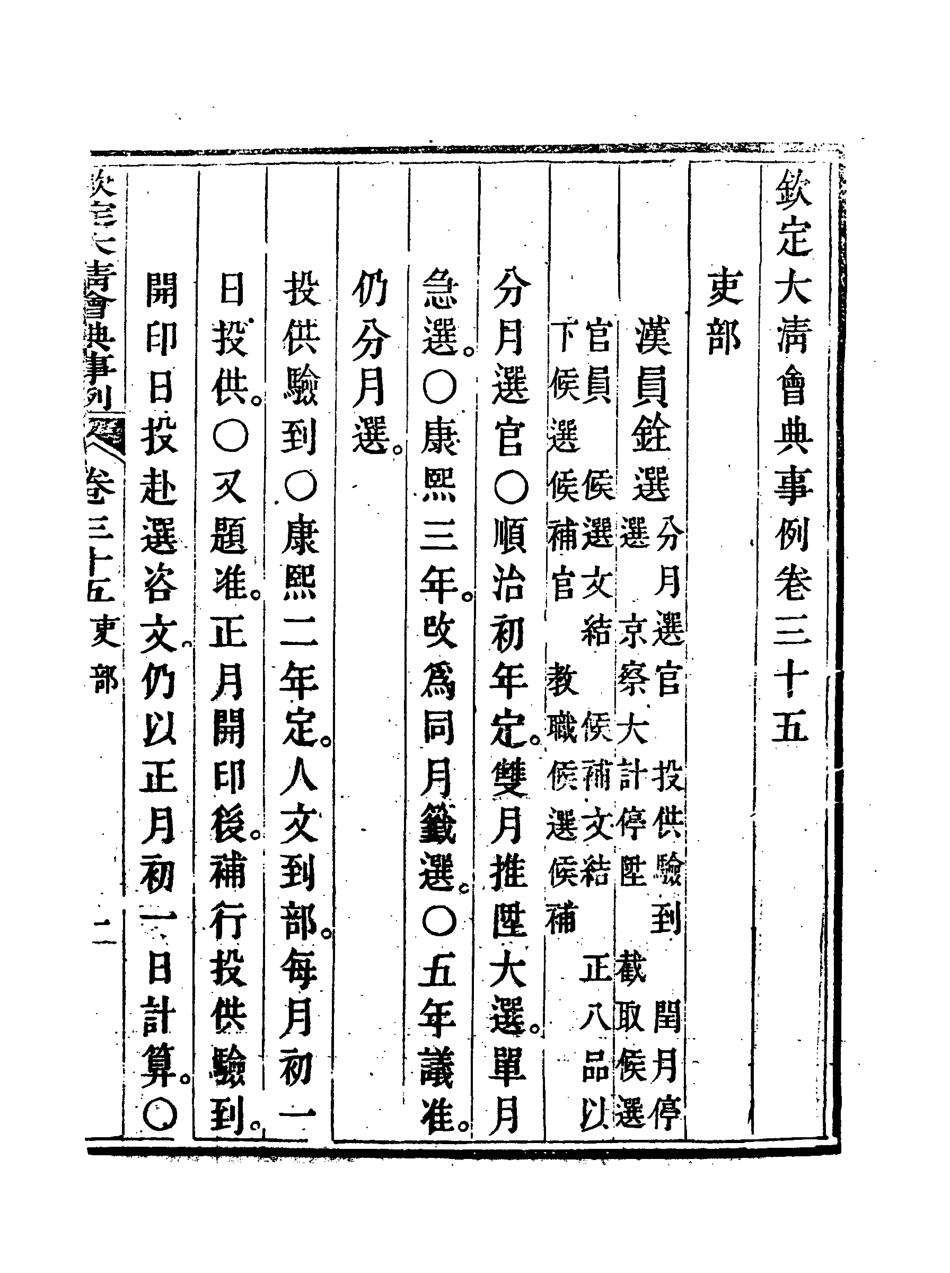 欽定大淸會典事例卷三十五
吏部
漢員銓選
分月選官 投供驗到 閏月停
選 京察大計停陞 截取候選
官員 候選文結 候補文結 正八品以
下候選候補官 教職候選候補
分月選官○順治初年定。雙月推陞大選。單月
急選。○康熙三年。改爲同月籤選。○五年議准。
仍分月選。
投供驗到○康熙二年定。人文到部。每月初一
日投供。○又題准。正月開印後。補行投供驗到。
開印日投赴選咨文。仍以正月初一日計算。○
欽定大淸會典事例 卷三十五 吏部 一